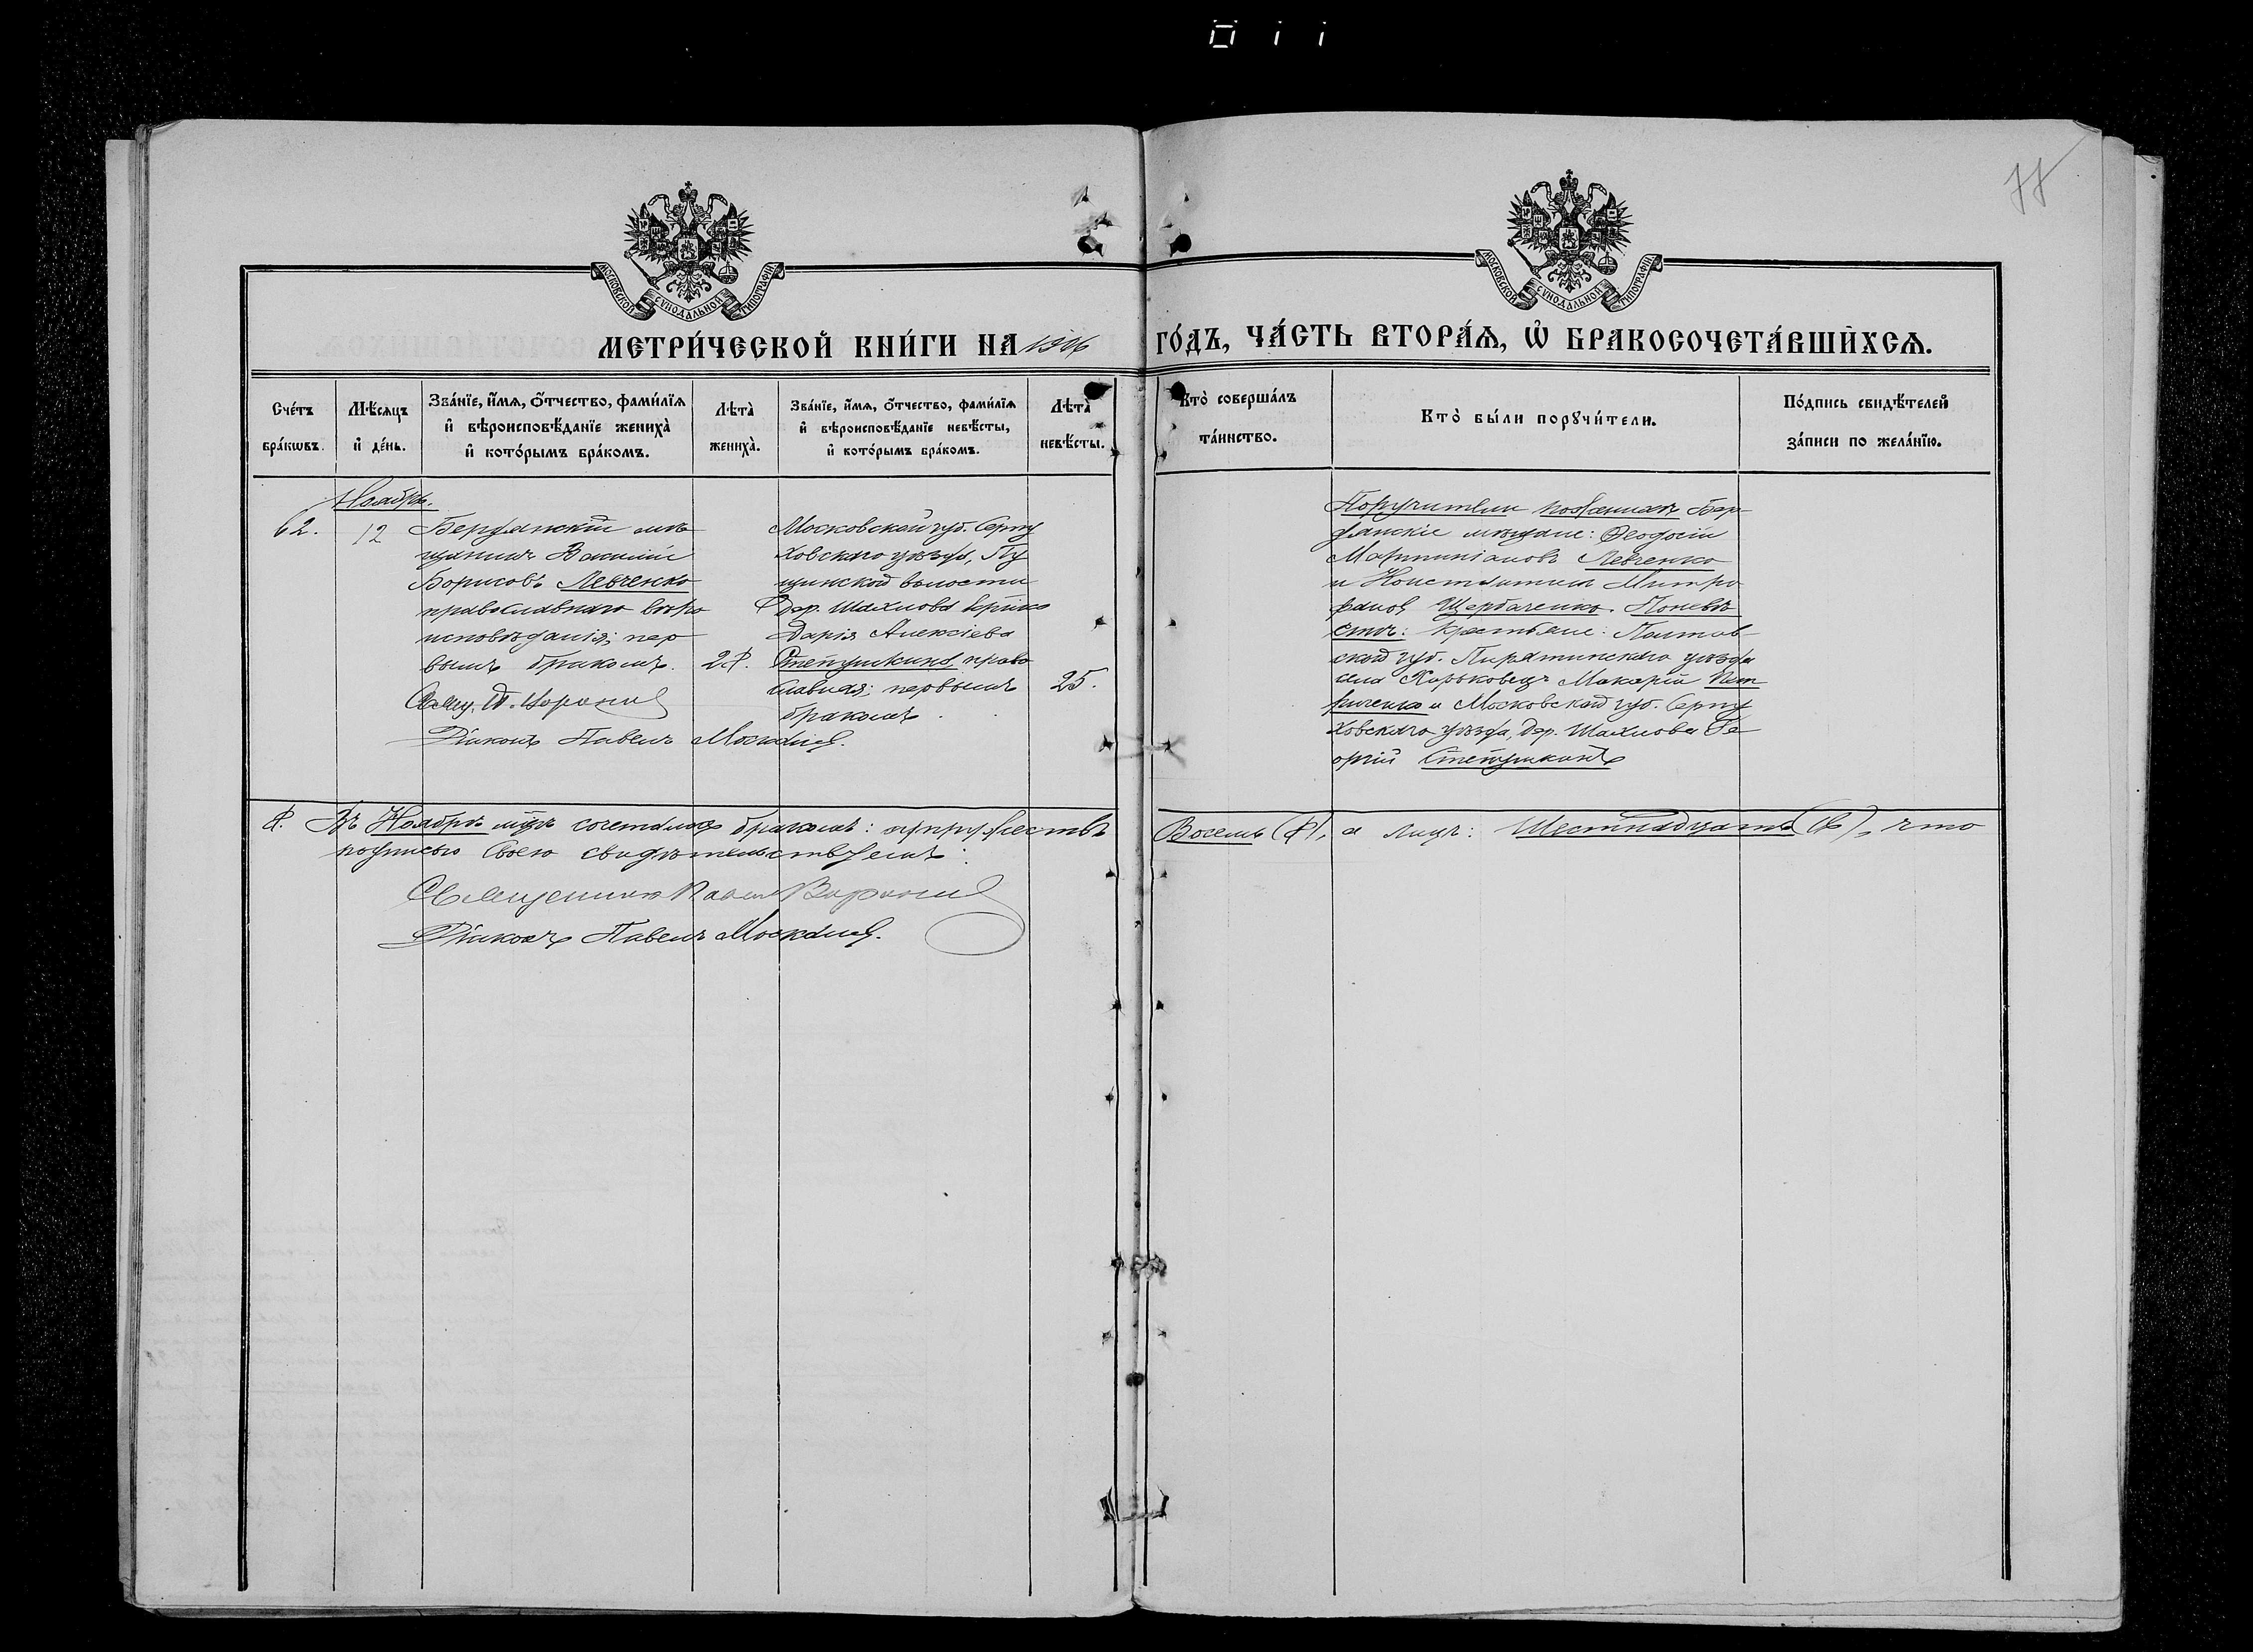 77
МОСКОВСКОЙ СѴНОДАЛЬНОЙ ТИПОГРАФІИ
МОСКОВСКОЙ СѴНОДАЛЬНОЙ ТИПОГРАФІИ
МЕТРИ́ЧЕСКОЙ КНИ́ГИ НА
ГО́ДЪ, ЧА́СТЬ ВТОРА́Ѧ, Ѡ҆ БРАКОСОЧЕТА́ВШИХСѦ.
Сче́тъ бра́кѡвъ.
Мѣ́сяцъ и҆ де́нь.
Зва́нїе, и҆́мѧ, ѻ҆́тчество, фами́лїѧ
и҆ вѣроисповѣ́данїе жениха̀
и҆ кото́рымъ бра́комъ.
Лѣта̀ жениха̀.
Зва́нїе, и҆́мѧ, ѻ҆́тчество, фами́лїѧ
и҆ вѣроисповѣ́данїе невѣ́сты,
и҆ кото́рымъ бра́комъ.
Лѣта̀ невѣ́сты.
Кто̀ соверша́лъ
та́инство.
Кто̀ бы́ли порꙋчи́тели.
По́дпись свидѣ́телей
за́писи по жела́нїю.
Ноябрь.
62.
12
Бердянскій мѣ-
щанинъ Василій
Борисовъ Левченко
православнаго вѣро
исповѣданія; пер-
вымъ бракомъ.
28.
Московской губ. Серпу
ховскаго уѣзда, Пу
щинской волости
дер. Шахлова
Дарія Алексіева
Степушкина, право
славная; первымъ
бракомъ.
25.
Свящ. П. Воронин
Діаконъ Павелъ Москалев.
Поручители по женихѣ Бер-
дянскіе мѣщане: Ѳеодосій
Мартиніановъ Левченко
и Константинъ Митро
фанов Щербаченко. По невѣ
стѣ: крестьяне: Полтав-
ской губ. Пирятинскаго уѣзда
села Харьковецъ Макарій
и Московской губ. Серпу
ховскаго уѣзда, дер. Шахлова Ге-
оргій Степушкинъ
8. Въ Ноябрѣ мцѣ сочеталось бракомъ: супружествъ Восемь (8), а лицъ: Шестнадцать (16), что
подписью своею свидѣтельствуемъ:
Священникъ Павел Воронин
Діаконъ Павелъ Москалев.